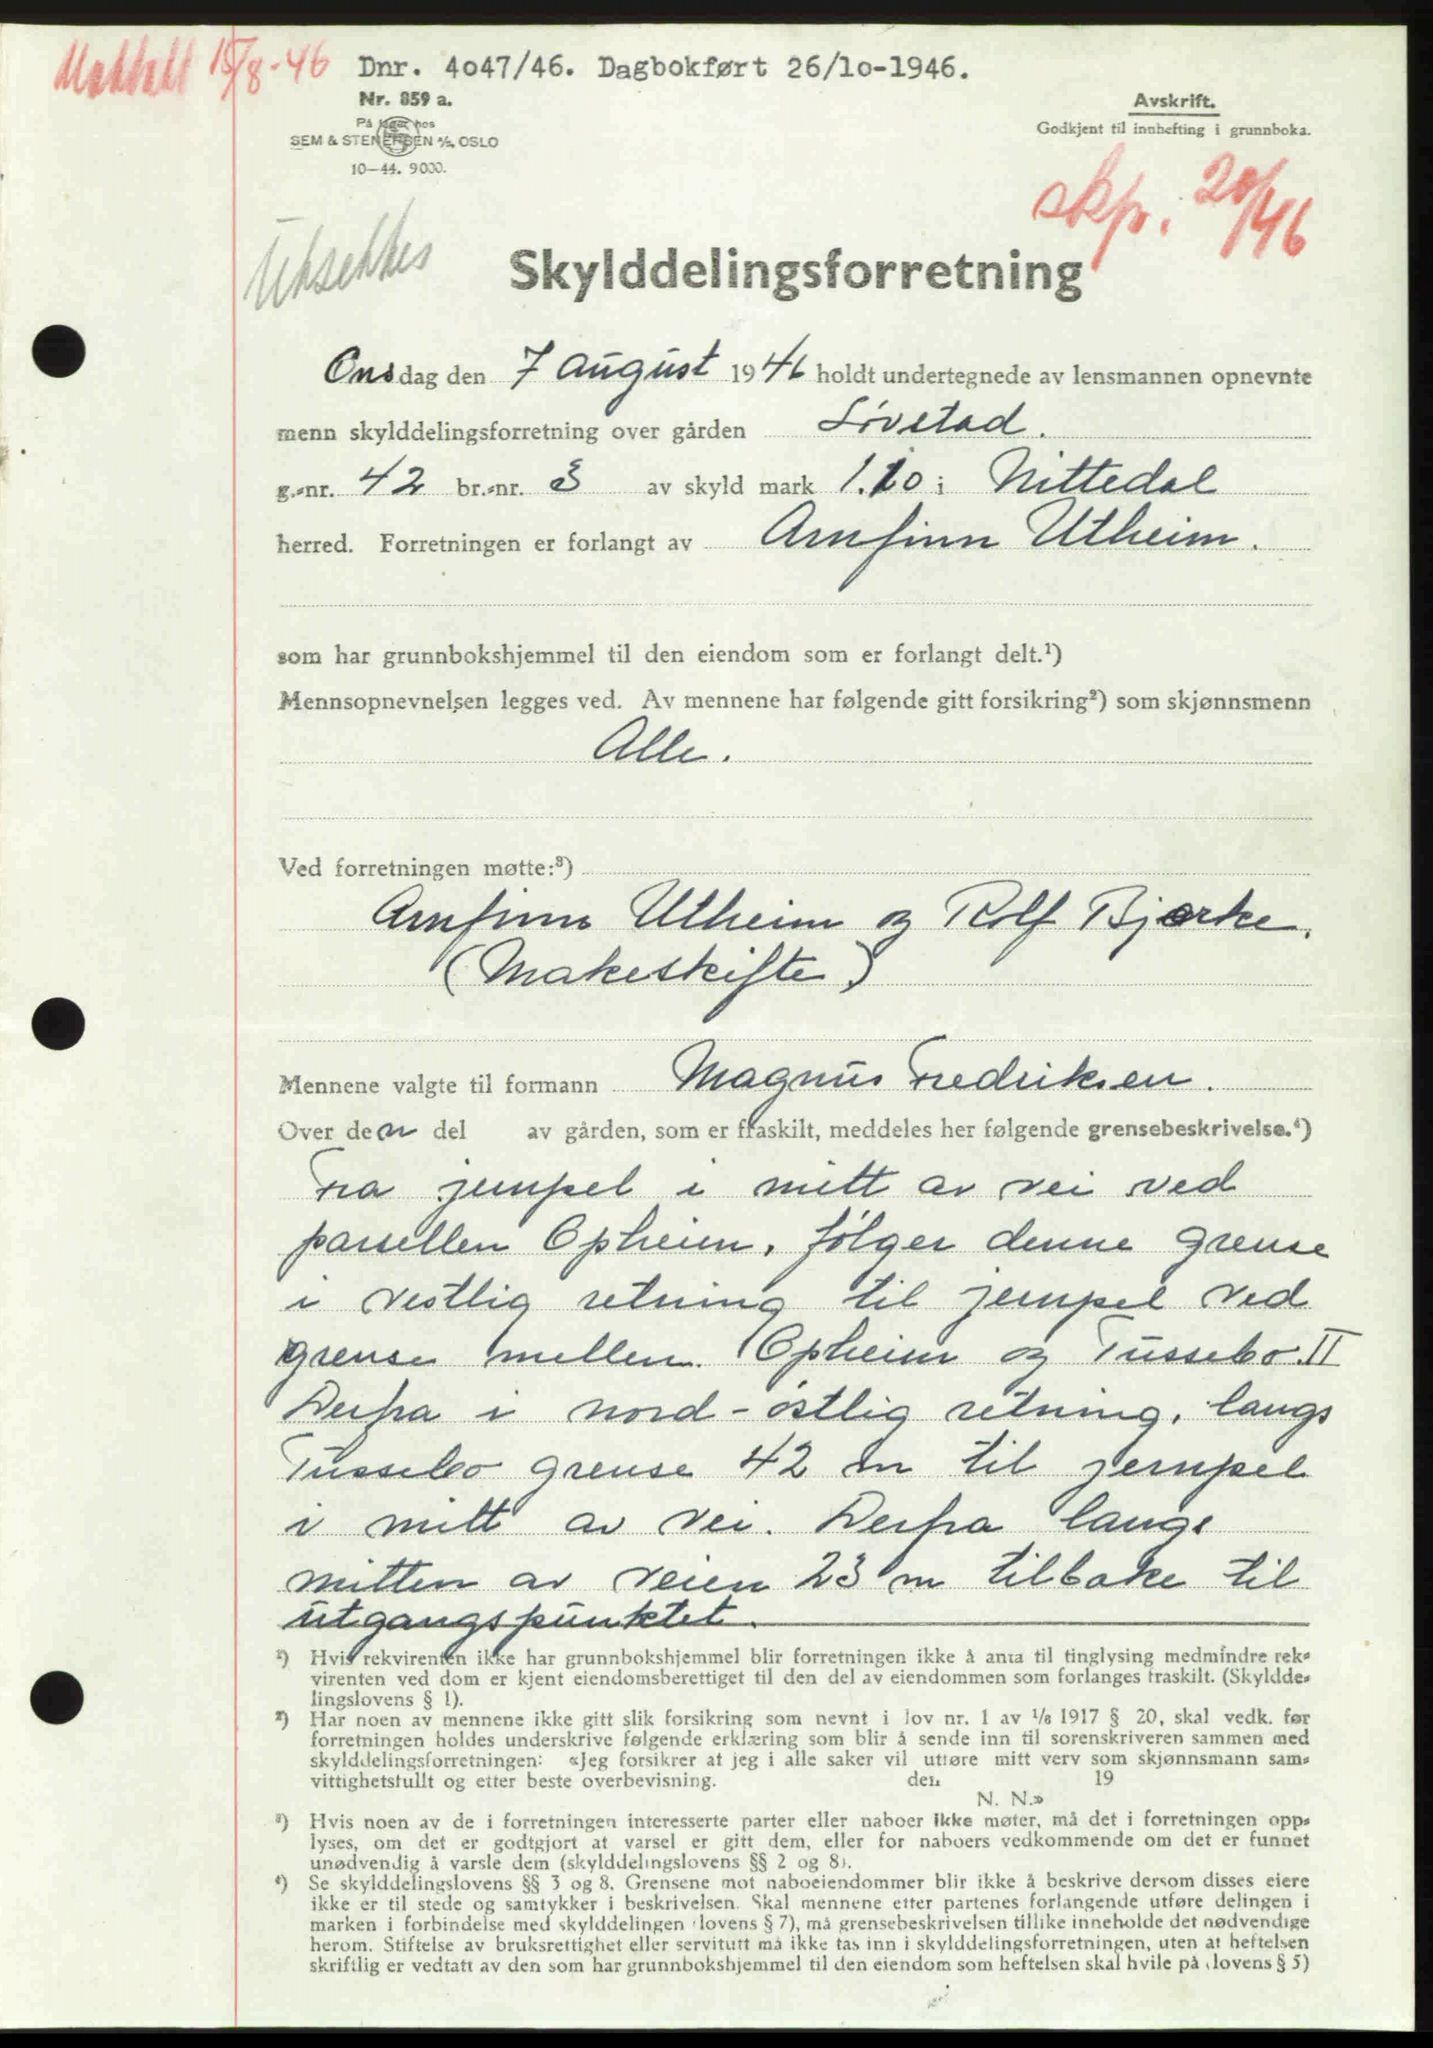 Mottatt 15/8-46
Dnr. 4047/46. Dagbokført 26/10-1946.
Nr. 859 a.
På lager hos
SEM & STENERSEN A/S, OSLO
10—44. 9000.
Avskrift.
Godkjent til innhefting i grunnboka.
skp. 20/46
Skylddelingsforretning
Onsdag den 7 august 1946 holdt undertegnede av lensmannen opnevnte
menn skylddelingsforretning over gården Løvstad.
g.-nr. 42 br.-nr. 3 av skyld mark 1.10 i Nittedal
herred. Forretningen er forlangt av Arnfinn Utheim.
som har grunnbokshjemmel til den eiendom som er forlangt delt.¹)
Mennsopnevnelsen legges ved. Av mennene har følgende gitt forsikring²) som skjønnsmenn
Alle.
Ved forretningen møtte:³)
Arnfinn Utheim og Rolf Bjerke.
(Makeskifte)
Mennene valgte til formann Magnus Fredriksen.
Over den del av gården, som er fraskilt, meddeles her følgende grensebeskrivelse.⁴)
Fra jernpel i mitt av vei ved
parsellen Opheim, følger denne grense
i vestlig retning til jernpel ved
grense mellem Opheim og Tussebo II
Derfra i nord-østlig retning, langs
Tussebo grense 42 m til jernpel
i mitt av vei. Derfra langs
mitten av veien 23 m tilbake til
utgangspunktet.
¹) Hvis rekvirenten ikke har grunnbokshjemmel blir forretningen ikke å anta til tinglysing medmindre rek-
virenten ved dom er kjent eiendomsberettiget til den del av eiendommen som forlanges fraskilt. (Skyldde-
lingslovens § 1).
²) Har noen av mennene ikke gitt slik forsikring som nevnt i lov nr. 1 av 1/6 1917 § 20, skal vedk. før
forretningen holdes underskrive følgende erklæring som blir å sende inn til sorenskriveren sammen med
skylddelingsforretningen: «Jeg forsikrer at jeg i alle saker vil utføre mitt verv som skjønnsmann sam-
vittighetsfullt og etter beste overbevisning. den 19
N. N.»
³) Hvis noen av de i forretningen interesserte parter eller naboer ikke møter, må det i forretningen opp-
lyses, om det er godtgjort at varsel er gitt dem, eller for naboers vedkommende om det er funnet
unødvendig å varsle dem (skylddelingslovens §§ 2 og 8).
⁴) Se skylddelingslovens §§ 3 og 8. Grensene mot naboeiendommer blir ikke å beskrive dersom disses eiere
ikke er til stede og samtykker i beskrivelsen. Skal mennene etter partenes forlangende utføre delingen i
marken i forbindelse med skylddelingen (lovens § 7), må grensebeskrivelsen tillike inneholde det nødvendige
herom. Stiftelse av bruksrettighet eller servitutt må ikke tas inn i skylddelingsforretningen, uten at heftelsen
skriftlig er vedtatt av den som har grunnbokshjemmel til den eiendom som heftelsen skal hvile på (lovens § 5)